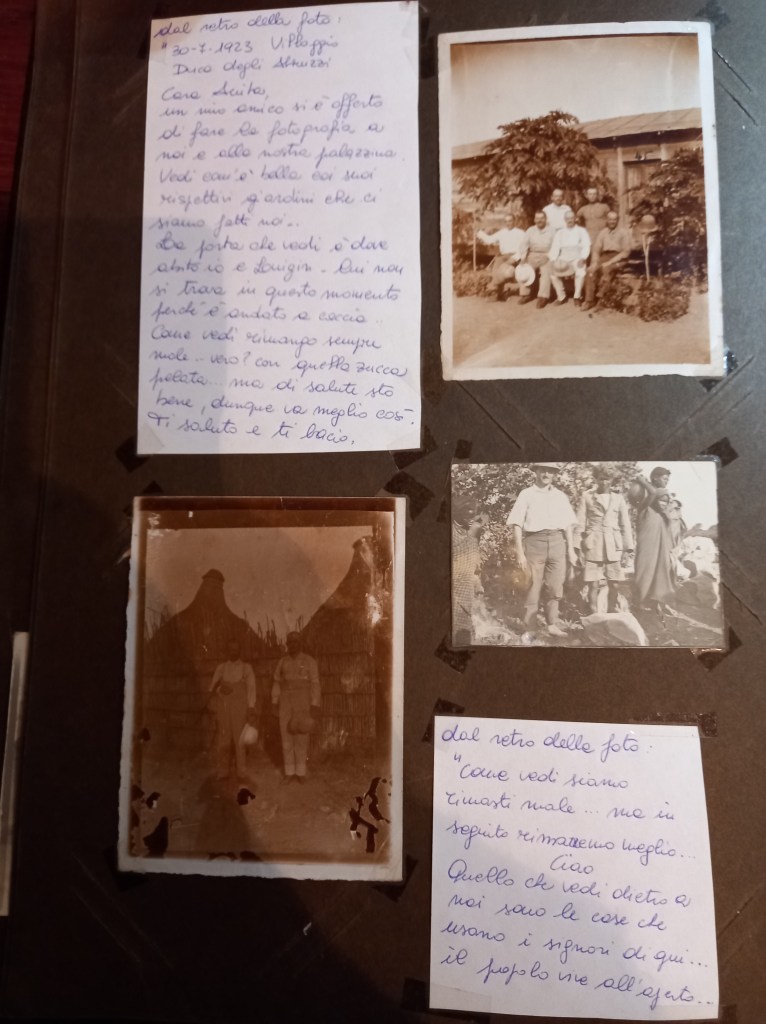 dal retro della foto:
"30-7-1923 Villaggio
Duca degli Abruzzi
Cara Anita,
un mio amico si è offerto
di fare la fotografia a
noi e alla nostra palazzina.
Vedi com'è bella coi suoi
rispettivi giardini che ci
siamo fatti noi..
La porta che vedi è dove
abito io e Louigin. Qui non
si trova in questo momento
perchè è andato a caccia..
Come vedi rimango sempre
male.. vero? con quella zucca
pelata... ma di salute sto
bene, dunque va meglio così.
Ti saluto e ti bacio,
dal retro della foto:
"Come vedi siamo
rimasti male... ma in
seguito rimarremo meglio...
Ciao
Quello che vedi dietro a
noi sono le case che
usano i signori di qui...
il popolo vive all'aperto...